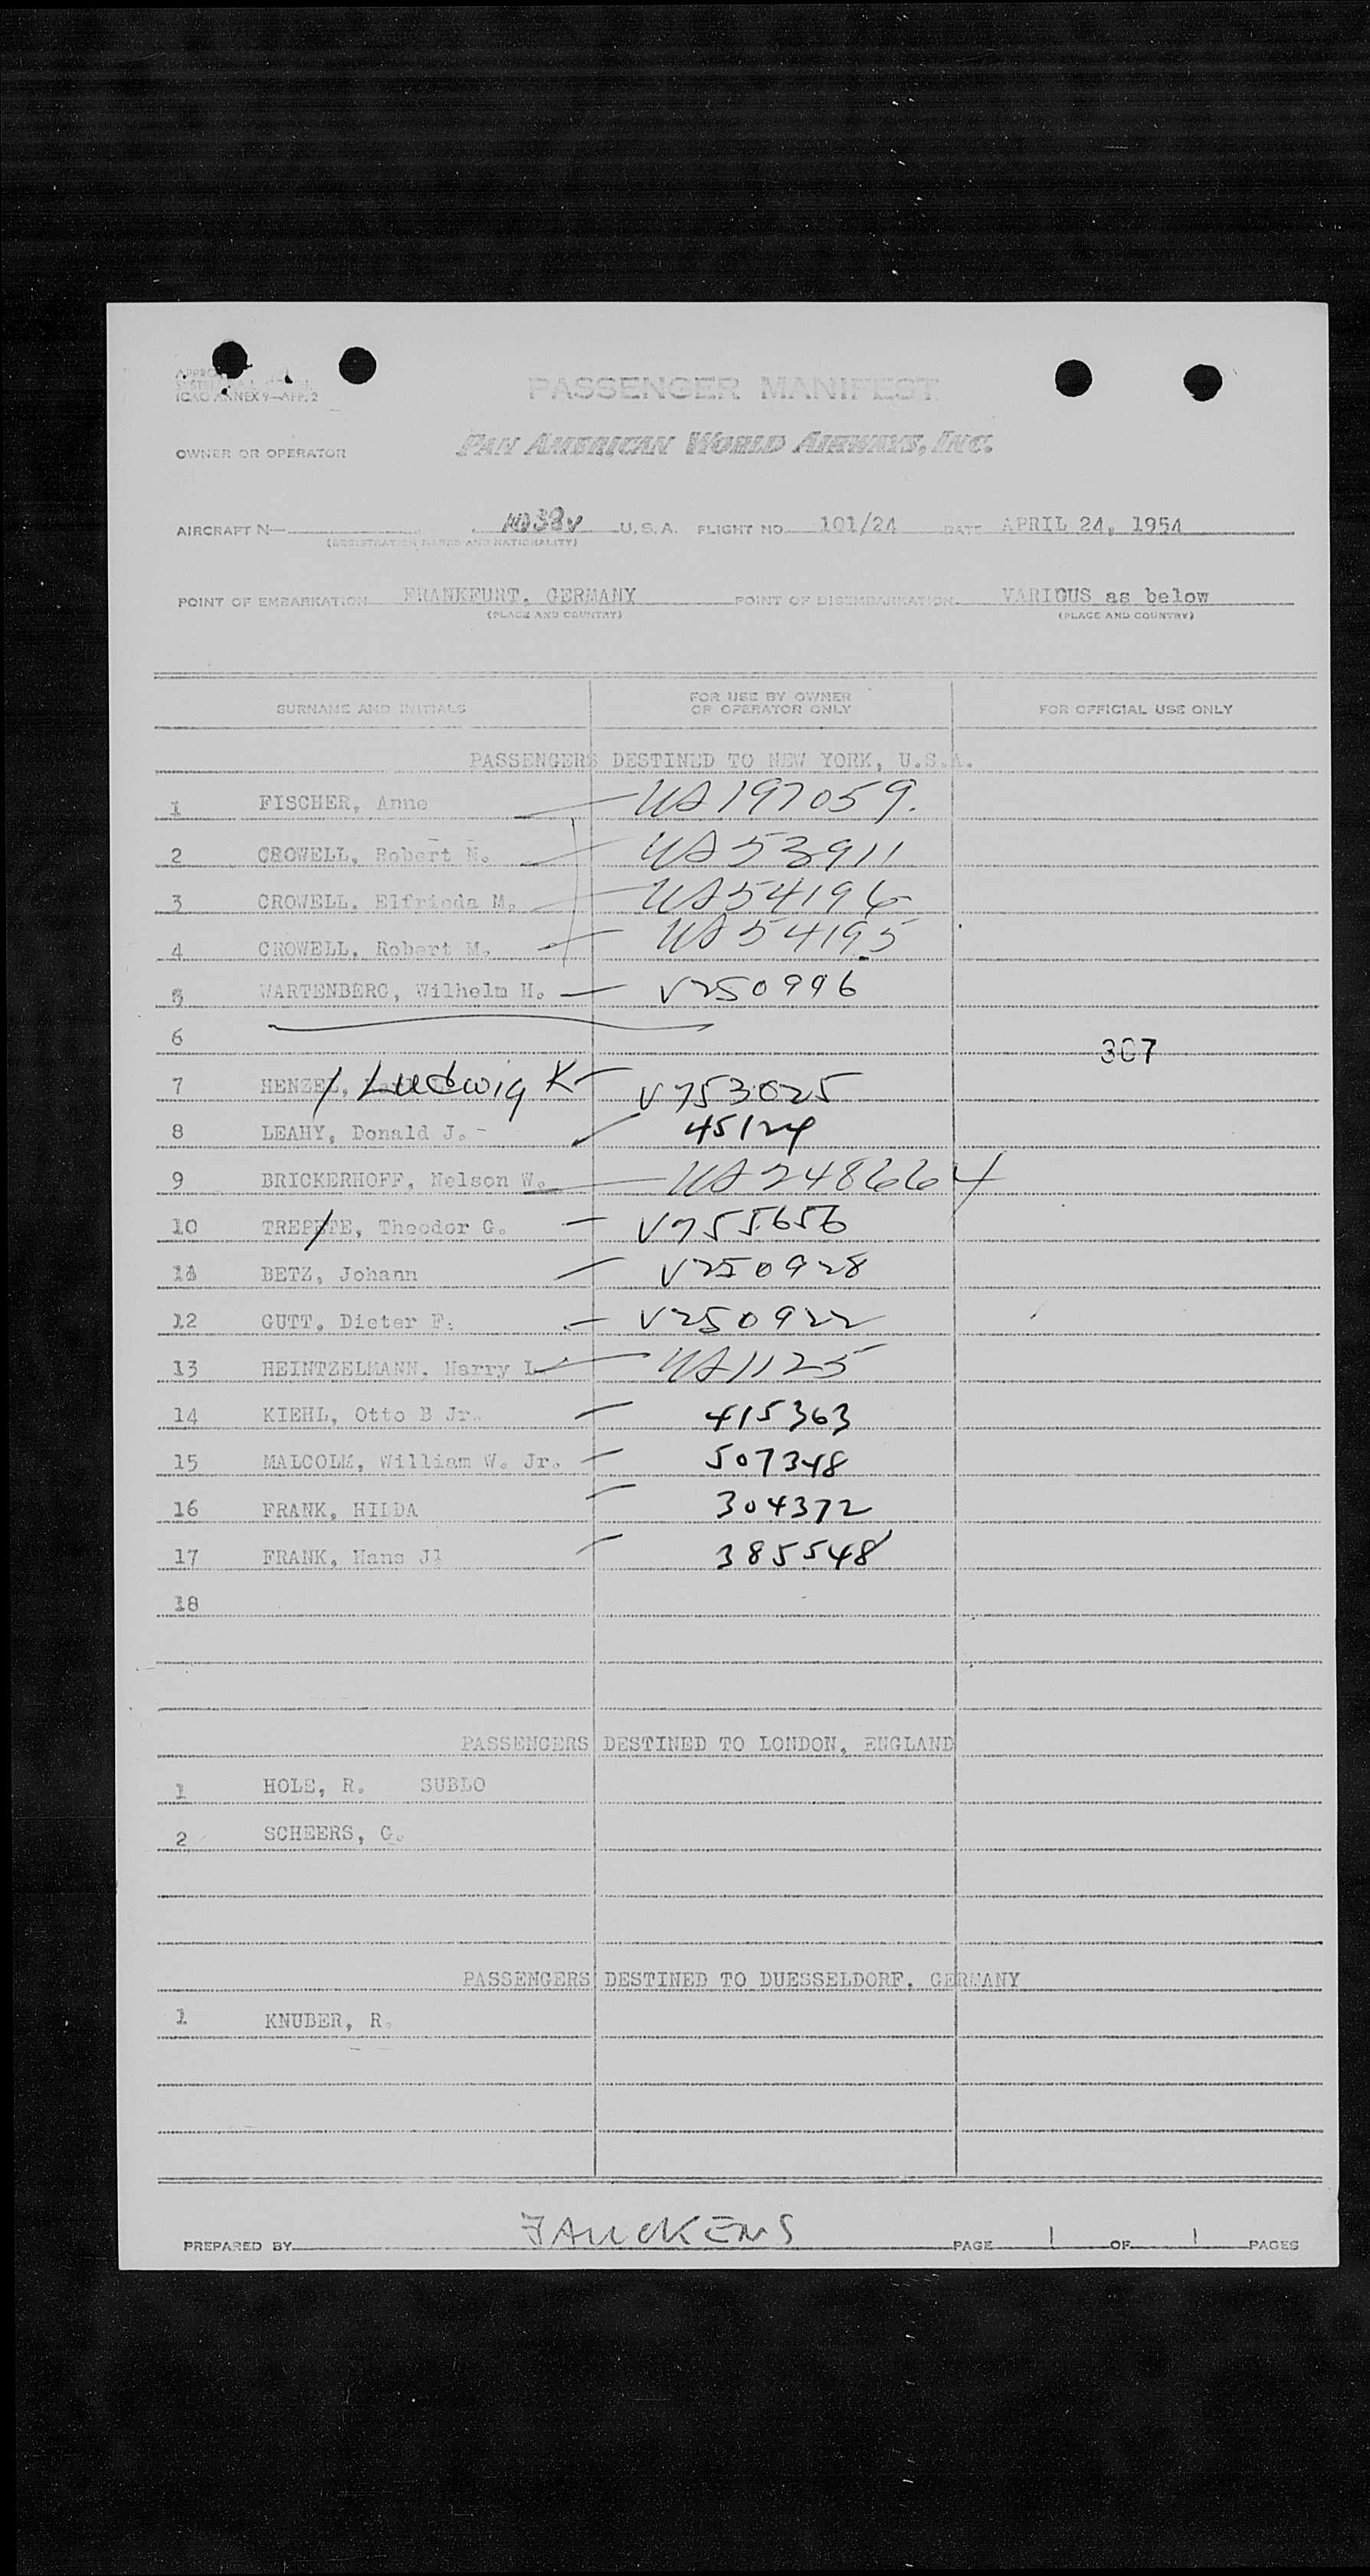 ICAO ANNEX 9—APP. 2
PASSENGER MANIFEST
OWNER OR OPERATOR PAN AMERICAN WORLD AIRWAYS, INC.
AIRCRAFT N— U.S.A. FLIGHT NO. 101/24 DATE APRIL 24, 1954
(REGISTRATION MARKS AND NATIONALITY)
POINT OF EMBARKATION FRANKFURT, GERMANY POINT OF DISEMBARKATION VARIOUS as below
(PLACE AND COUNTRY) (PLACE AND COUNTRY)
SURNAME AND INITIALS FOR USE BY OWNER OR OPERATOR ONLY FOR OFFICIAL USE ONLY
PASSENGERS DESTINED TO NEW YORK, U.S.A.
1 FISCHER, Anne UA 197059.
2 CROWELL, Robert N. UA 53911
3 CROWELL, Elfrieda M. UA 54196
4 CROWELL, Robert M. UA 54195
5 WARTENBERG, Wilhelm H. V250996
6
307
7 HENZEL, Ludwig K V753025
8 LEAHY, Donald J. 45124
9 BRICKERHOFF, Nelson W. UA 248664
10 TREPETE, Theodor G. V755656
11 BETZ, Johann V250928
12 GUTT, Dieter F. V250922
13 HEINTZELMANN, Harry L UA 1125
14 KIEHL, Otto B Jr. 415363
15 MALCOLM, William W. Jr. 507348
16 FRANK, HILDA 304372
17 FRANK, Hans Jl 385548
18
PASSENGERS DESTINED TO LONDON, ENGLAND
1 HOLE, R. SUBLO
2 SCHEERS, G.
PASSENGERS DESTINED TO DUESSELDORF, GERMANY
1 KNUBER, R.
PREPARED BY PAGE 1 OF 1 PAGES